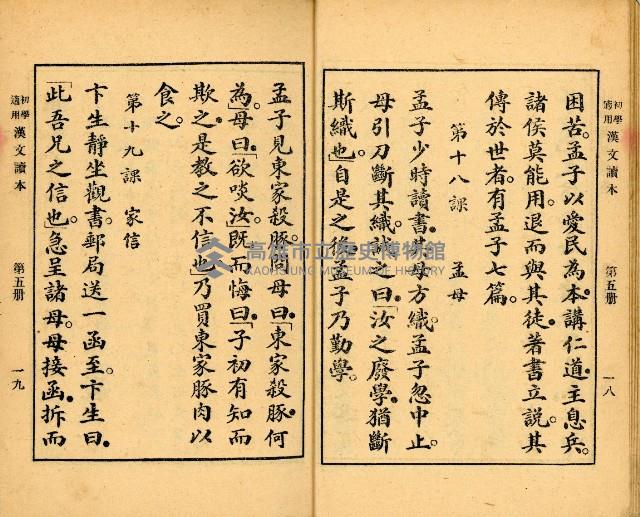 初學適用 漢文讀本 第五册 一八
困苦。孟子以愛民為本。講仁道。主息兵。
諸侯莫能用。退而與其徒。著書立說。其
傳於世者。有孟子七篇。
第十八課 孟母
孟子少時讀書。其母方織。孟子忽中止。
母引刀斷其織。戒之曰。「汝之廢學。猶斷
斯織也。」自是之後。孟子乃勤學。
孟子見東家殺豚。問母曰。「東家殺豚。何
為。」母曰。「欲啖汝。」既而悔曰。「子初有知。而
欺之。是教之不信也。」乃買東家豚肉以
食之。
第十九課 家信
卞生靜坐觀書。郵局送一函至。卞生曰。
「此吾兄之信也。」急呈諸母。母接函。拆而
初學適用 漢文讀本 第五册 一九
高雄市立歷史博物館
KAOHSIUNG MUSEUM OF HISTORY